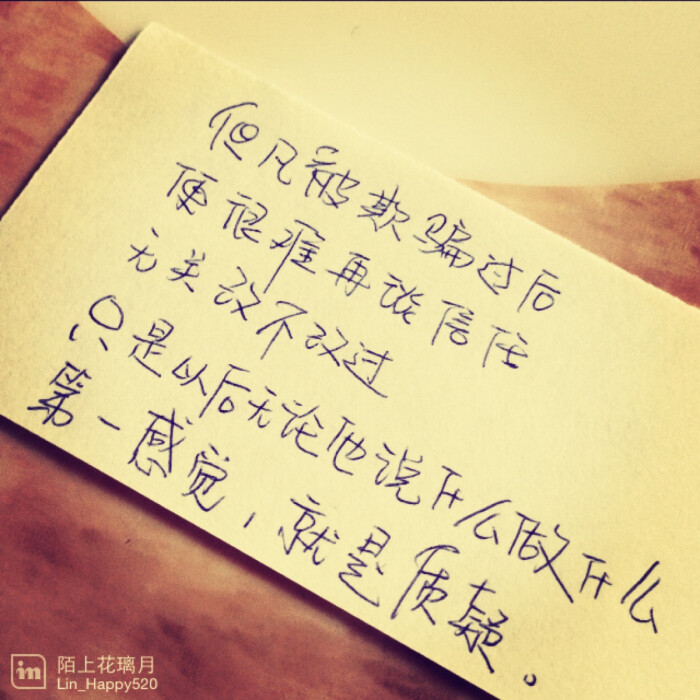 但凡被欺骗过后
便很难再谈信任
无关改不改过
只是以后无论他说什么做什么
第一感觉，就是质疑。
im
陌上花璃月
Lin_Happy520